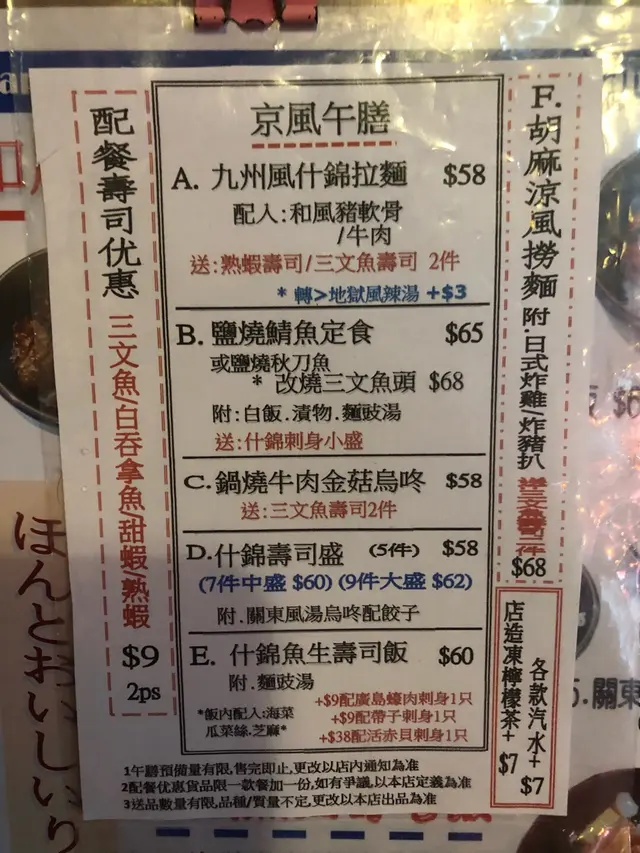 配餐壽司优惠
三文魚/白吞拿魚甜蝦熟蝦
$9
2ps
京風午膳
A. 九州風什錦拉麵 $58
配入:和風豬軟骨
/牛肉
送:熟蝦壽司/三文魚壽司 2件
* 轉>地獄風辣湯 +$3
B. 鹽燒鯖魚定食 $65
或鹽燒秋刀魚
* 改燒三文魚頭 $68
附:白飯.漬物.麵豉湯
送:什錦刺身小盛
C. 鍋燒牛肉金菇烏咚 $58
送:三文魚壽司2件
D. 什錦壽司盛 (5件) $58
(7件中盛 $60) (9件大盛 $62)
附.關東風湯烏咚配餃子
E. 什錦魚生壽司飯 $60
附.麵豉湯
*飯內配入:海菜
瓜菜絲.芝麻*
+$9配廣島蠔肉刺身1只
+$9配帶子刺身1只
+$38配活赤貝刺身1只
1午膳預備量有限,售完即止,更改以店内通知為准
2配餐优惠貨品限一款餐加一份,如有爭議,以本店定義為准
3送品數量有限,品種/質量不定,更改以本店出品為准
F. 胡麻涼風撈麵 附.日式炸雞/炸豬扒
$68
各款汽水+
$7
店造凍檸檬茶+
$7
ほんとおいしいり
5.關東